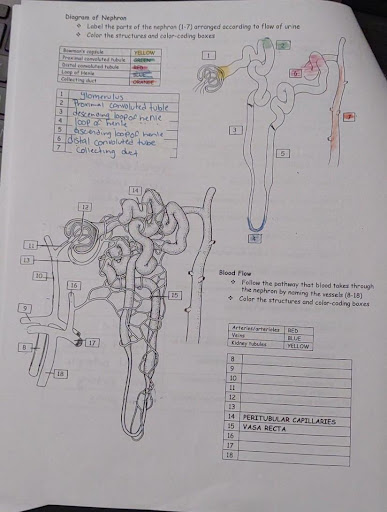 Diagram of Nephron
❖ Label the parts of the nephron (1-7) arranged according to flow of urine
❖ Color the structures and color-coding boxes
Bowman's capsule YELLOW
Proximal convoluted tubule GREEN
Distal convoluted tubule RED
Loop of Henle BLUE
Collecting duct ORANGE
1 glomerulus
2 Proximal convoluted tuble
3 descending loop of henle
4 loop of henle
5 ascending loop of henle
6 distal convoluted tube
7 collecting duct
1
2
6
3
5
7
4
14
12
11
13
10
16
15
9
8
17
18
Blood Flow
❖ Follow the pathway that blood takes through
the nephron by naming the vessels (8-18)
❖ Color the structures and color-coding boxes
Arteries/arterioles RED
Veins BLUE
Kidney tubules YELLOW
8
9
10
11
12
13
14 PERITUBULAR CAPILLARIES
15 VASA RECTA
16
17
18